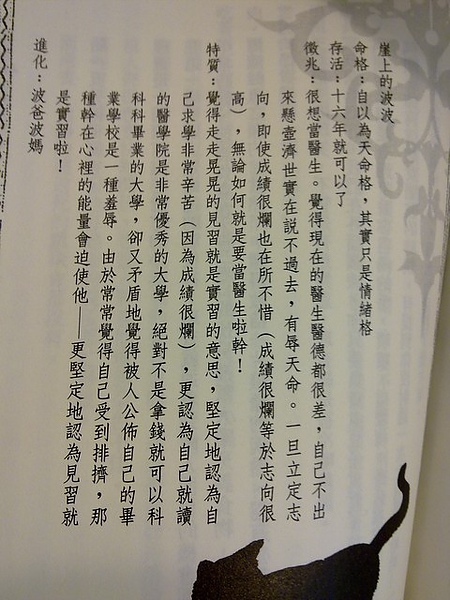 崖上的波波
命格：自以為天命格，其實只是情緒格
存活：十六年就可以了
徵兆：很想當醫生。覺得現在的醫生醫德都很差，自己不出
來懸壺濟世實在說不過去，有辱天命。一旦立定志
向，即使成績很爛也在所不惜（成績很爛等於志向很
高），無論如何就是要當醫生啦幹！
特質：覺得走走晃晃的見習就是實習的意思，堅定地認為自
己求學非常辛苦（因為成績很爛），更認為自己就讀
的醫學院是非常優秀的大學，絕對不是拿錢就可以科
科科畢業的大學，卻又矛盾地覺得被人公佈自己的畢
業學校是一種羞辱。由於常常覺得自己受到排擠，那
種幹在心裡的能量會迫使他——更堅定地認為見習就
是實習啦！
進化：波爸波媽